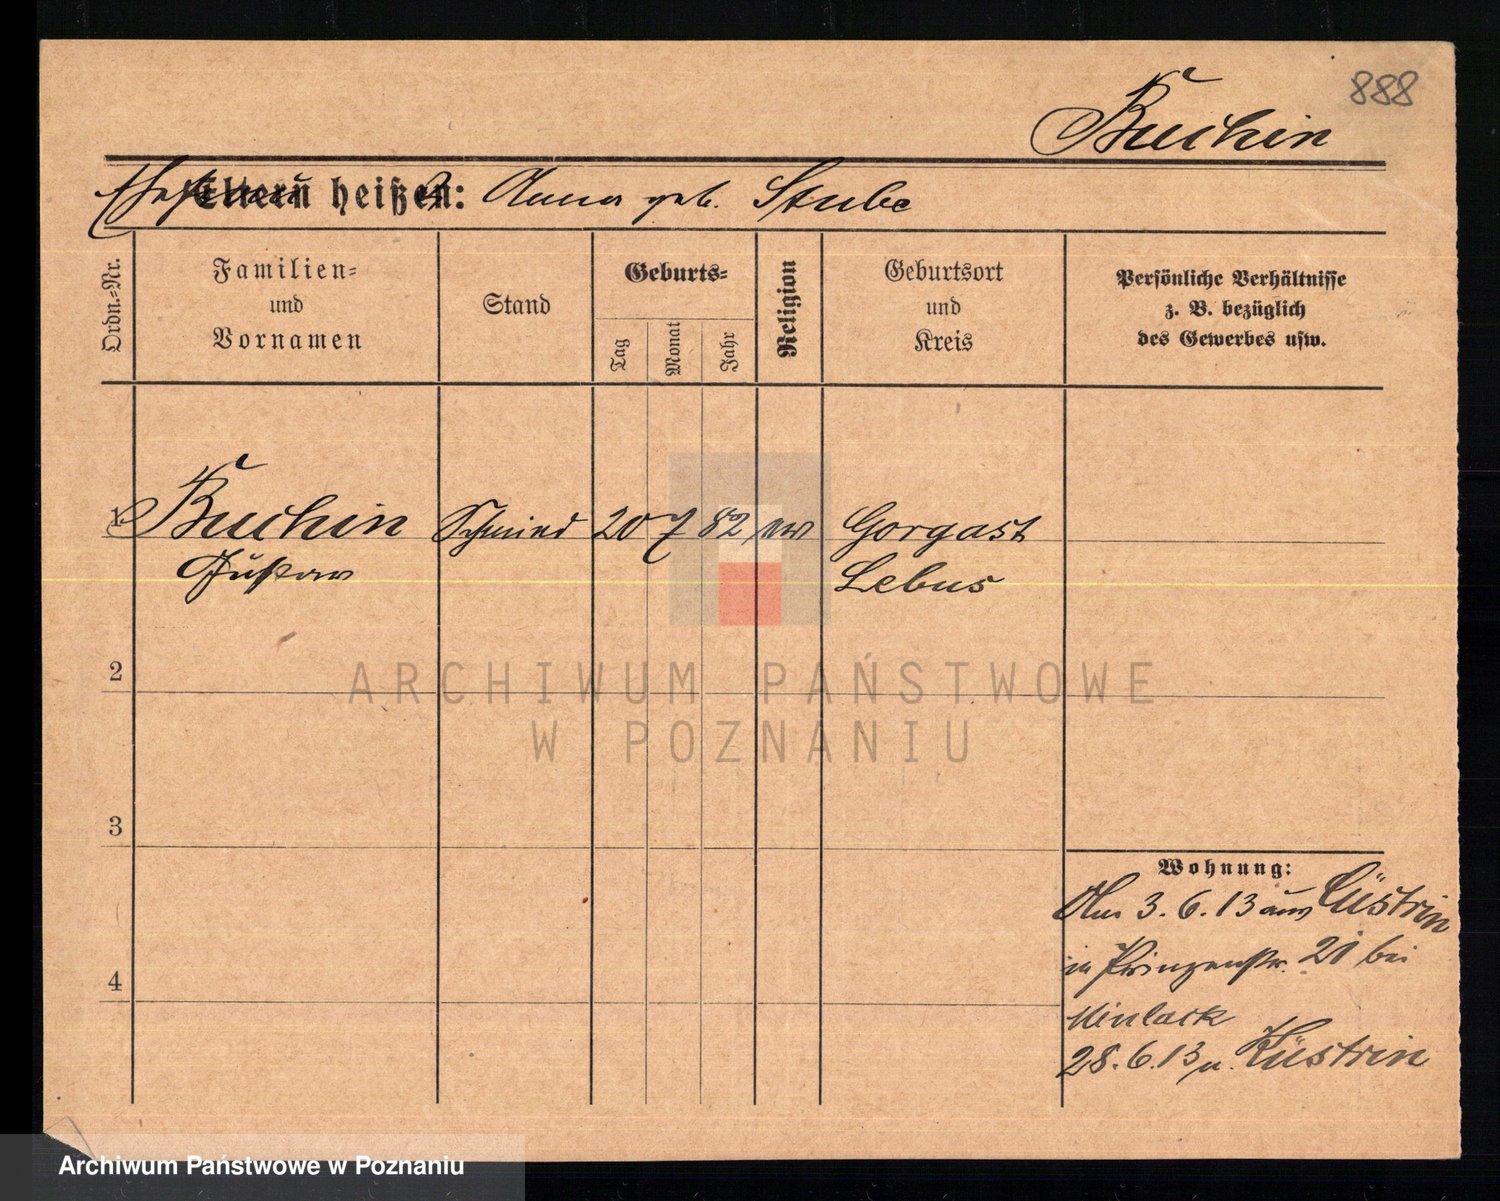 888
Buchin
Eltern heißen: Anna geb. Stube
Ordn.=Nr.
Familien=
und
Vornamen
Stand
Geburts=
Tag
Monat
Jahr
Religion
Geburtsort
und
Kreis
Persönliche Verhältnisse
z. B. bezüglich
des Gewerbes usw.
1 Buchin Schmied 20 7 82 ew Gorgast
Gustav Lebus
ARCHIWUM PAŃSTWOWE
W POZNANIU
2
3
4
Wohnung:
3.6.13 aus Cüstrin
in Prinzenstr. 20 bei
28.6.13 n. Küstrin
Archiwum Państwowe w Poznaniu